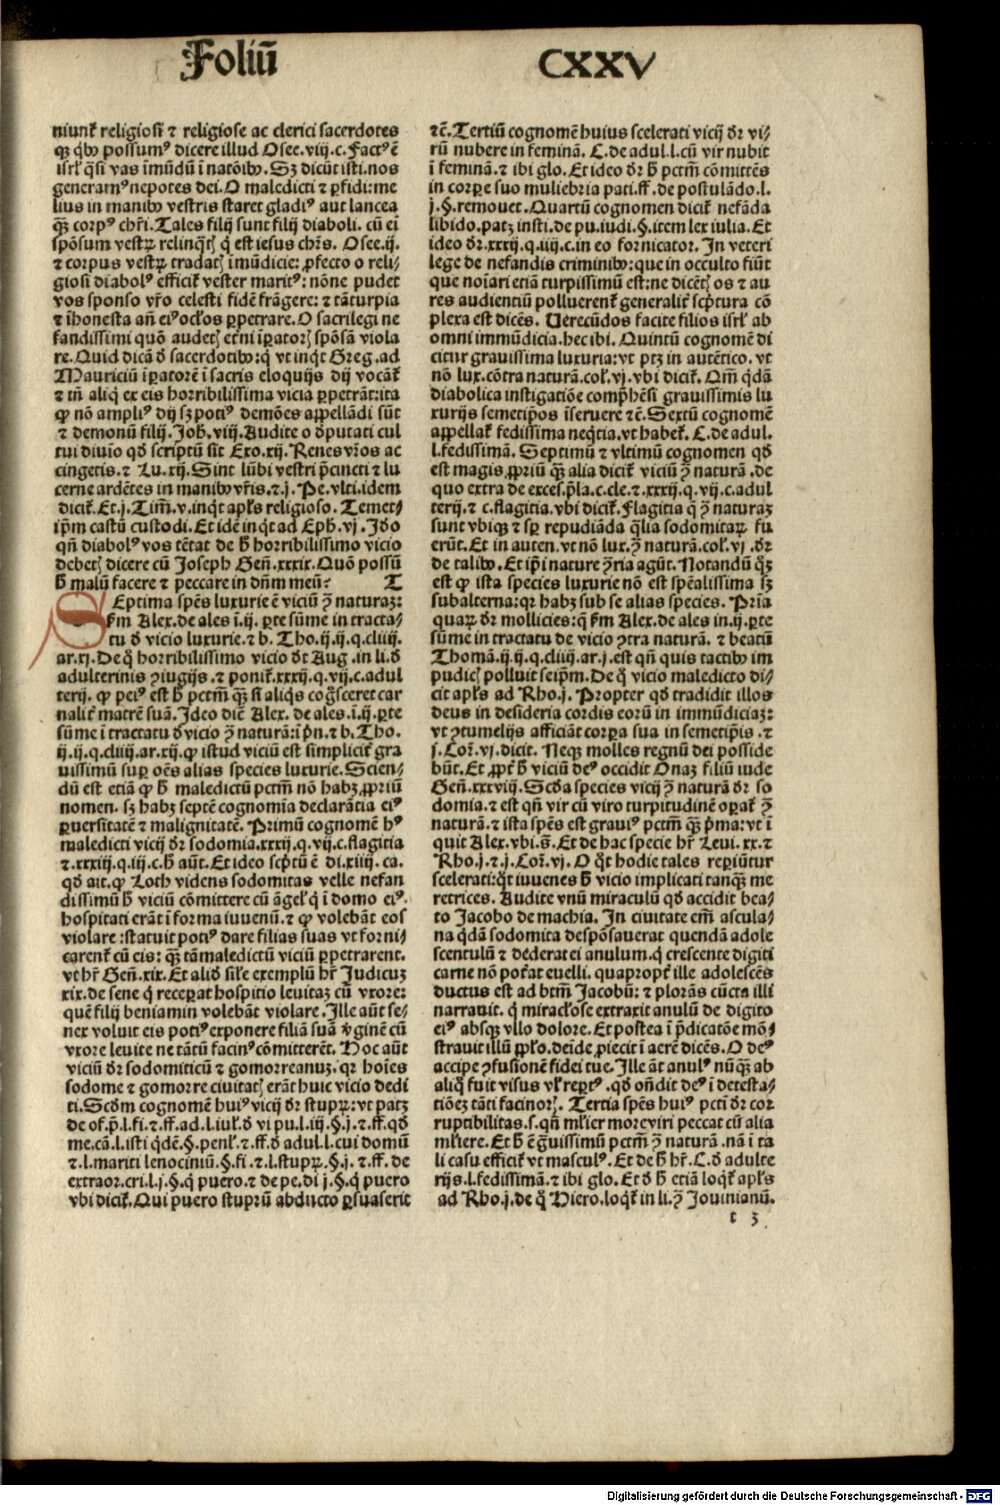 Foliū CXXV
niunt̄ religiosi ⁊ religiose ac clerici sacerdotes
qꝫ q̄bꝰ possumꝰ dicere illud Osee.viij.c. Factꝰ ē
isrl̓ q̄si vas īmūdū ī natōibꝰ. Sꝫ dicūt isti.nos
generamꝰ nepotes dei. O maledicti ⁊ ꝑfidi: me
lius in manibꝰ vestris staret gladiꝰ aut lancea
qꝫ̄ corpꝰ chr̄i. Tales filij sunt filij diaboli. cū ei
spōsum vestꝝ relinq̄tꝭ q̇ est iesus chr̄s. Osee.ij.
⁊ corpus vestꝝ tradatꝭ īmūdicie: ꝓfecto o reli⸗
giosi diabolꝰ efficit̄ vester maritꝰ: nōne pudet
vos sponso vr̄o celesti fidē frāgere: ⁊ tāturpia
⁊ īhonesta añ eiꝰ ocl̓os ꝑpetrare. O sacrilegi ne
fandissimi quō audetꝭ et̄ni īꝑatorꝭ spōsā viola
re. Quid dicā đ sacerdotibꝰ: q̇ vt inq̇t Greg. ad
Mauriciū īꝑatorē ī sacris eloquijs dij vocāt̄
⁊ tn̄ aliq̇ ex eis horribilissima vicia ꝑpetrāt: ita
ꝙ nō ampliꝰ dij sꝫ potiꝰ demōes appellādi sūt
⁊ demonū filij. Joh̄. viij. Audite o đputati cul
tui diuīo qđ scriptū sit Exo.xij. Renes vr̄os ac
cingetis. ⁊ Lu. xij. Sint lūbi vestri p̄cincti ⁊ lu
cerne ardētes in manibꝰ vr̄is. ⁊.j. Pe. vlti. idem
dicit̄. Et.j. Tim̄. v. inq̇t apl̓s religioso. Temet⸗
ip̄m castū custodi. Et idē inq̇t ad Eph̄. vj. Jđo
qn̄ diabolꝰ vos tētat de h̄ horribilissimo vicio
debetꝭ dicere cū Joseph Geñ.xxxix. Quō possū
h̄ malū facere ⁊ peccare in dn̄m meū? T
Septima spēs luxurie ē viciū ꝯ̄ naturaꝫ:
fm̄ Alex. de ales ī.ij. ꝑte sūme in tracta⸗
tu đ vicio luxurie. ⁊ b. Tho. ij. ij. q. cliiij.
ar. xj. De q̇ horribilissimo vicio đt Aug. in li. đ
adulterinis ꝯiugijs. ⁊ ponit̄.xxxij. q. vij. c. adul
terij. ꝙ peiꝰ est h̄ pctm̄ qꝫ̄ si aliq̇s cog̈sceret car
nalit̄ matrē suā. Jdeo diē Alex. de ales. ī.ij. ꝑte
sūme ī tractatu đ vicio ꝯ̄ naturā: ī p̄n. ⁊ b. Tho.
ij. ij. q. cliiij. ar. xij. ꝙ istud viciū est simplicit̄ gra
uissimū suꝑ oēs alias species luxurie. Scien⸗
dū est etiā ꝙ h̄ maledictū pctm̄ nō habꝫ ꝓpriū
nomen. sꝫ habꝫ septē cognomīa declarātia eiꝰ
ꝑuersitatē ⁊ malignitatē. Primū cognomē hꝰ
maledicti vicij đr sodomia.xxxij.q.vij.c.flagitia
⁊.xxxiij.q.iij.c.h̄ aūt. Et ideo scp̄tū ē di.xiiij. ca.
qđ ait. ꝙ Loth videns sodomitas velle nefan
dissimū h̄ viciū cōmittere cū āgel̓ q̇ ī domo eiꝰ.
hospitati erāt ī forma iuuenū. ⁊ ꝙ volebāt eos
violare: statuit potiꝰ dare filias suas vt forni⸗
carent̄ cū eis: qꝫ̄ tā maledictū viciū ꝑpetrarent.
vt hr̄ Geñ. xix. Et aliđ sil̓e exemplū hr̄ Judicuꝫ
xix. de sene q̇ receꝑat hospitio leuitaꝫ cū vxore:
quē filij beniamin volebāt violare. Jlle aūt se⸗
nex voluit eis potiꝰ exponere filiā suā v̄ginē cū
vxore leuite ne tātū facinꝰ cōmitterēt. Hoc aūt
viciū đr sodomiticū ⁊ gomorreanuꝫ. qr hoīes
sodome ⁊ gomorre ciuitatꝭ erāt huic vicio dedi
ti. Scđm cognomē huiꝰ vicij đr stupꝝ: vt patꝫ
de of. p̄. l. fi. ⁊ ff. ad. l. iul̓. đ vi pu. l. iij. §. j. ⁊ ff. qđ
me. cā. l. isti q̇dē. §. penl̓. ⁊ ff. đ adul. l. cui domū
⁊. l. mariti lenociniū. §. fi. ⁊. l. stupꝝ. §. j. ⁊ ff. de
extraor. cri. l. j. §. q̇ puero. ⁊ de pe. di j. §. q̇ puero
vbi dicit̄. Qui puero stuprū abducto ꝑsuaserit
⁊c̄. Tertiū cognomē huius scelerati vicij đr vi⸗
rū nubere in feminā. C. de adul. l. cū vir nubit
ī feminā. ⁊ ibi glo. Et ideo đr h̄ pctm̄ cōmittēs
in corꝑe suo muliebria pati. ff. de postulādo. l.
j. §. remouet. Quartū cognomen dicit̄ nefāda
libido. patꝫ insti. de pu. iudi. §. item lex iulia. Et
ideo đr.xxxij.q.iiij.c.in eo fornicator. In veteri
lege de nefandis criminibꝰ: que in occulto fiūt
que noīari etiā turpissimū est: ne dicētꝭ os ⁊ au
res audientiū polluerent̄ generalit̄ scp̄tura cō
plexa est dicēs. Verecūdos facite filios isrl̓ ab
omni immūdicia. hec ibi. Quintū cognomē di
citur grauissima luxuria: vt ptꝫ in autētico. vt
nō lux. cōtra naturā. col̓. vj. vbi dicit̄. Qm̄ q̇dā
diabolica instigatiōe comp̄hēsi grauissimis lu
xurijs semetip̄os īseruere ⁊c̄. Sextū cognomē
appellat̄ fedissima neq̇tia. vt habet̄. C. de adul.
l. fedissimā. Septimū ⁊ vltimū cognomen qđ
est magis ꝓpriū qꝫ̄ alia dicit̄ viciū ꝯ̄ naturā. de
quo extra de exces. p̄la. c. cle. ⁊.xxxij.q.vij.c.adul
terij. ⁊ c. flagitia. vbi dicit̄. Flagitia q̄ ꝯ̄ naturaꝫ
sunt vbiqꝫ ⁊ sꝑ repudiāda q̄lia sodomitaꝝ fu
erūt. Et in auten. vt nō lux. ꝯ̄ naturā. col̓. vj. đr
de talibꝰ. Et ip̄i nature ꝯ̄ria agūt. Notandū qꝫ̄
est ꝙ ista species luxurie nō est spēalissima sꝫ
subalterna: qr habꝫ sub se alias species. Prīa
quaꝝ đr mollicies: q̄ fm̄ Alex. de ales in. ij. ꝑte
sūme in tractatu de vicio ꝯtra naturā. ⁊ beatū
Thomā. ij. ij. q. cliiij. ar. j. est qn̄ quis tactibꝰ im
pudicꝭ polluit seip̄m. De q̇ vicio maledicto di⸗
cit apl̓s ad Rho. j. Propter qđ tradidit illos
deus in desideria cordis eorū in immūdiciaꝫ:
vt ꝯtumelijs afficiāt corꝑa sua in semetip̄is. ⁊
j. Cor̄. vj. dicit. Neqꝫ molles regnū dei posside
būt. Et ꝓpt̄ h̄ viciū deꝰ occidit Onaꝫ filiū iude
Geñ. xxxviij. Scđa species vicij ꝯ̄ naturā đr so
domia. ⁊ est qn̄ vir cū viro turpitudinē oꝑat̄ ꝯ̄
naturā. ⁊ ista spēs est grauiꝰ pctm̄ qꝫ̄ p̄ma: vt ī
quit Alex. vbi. s̄. Et de hac specie hr̄ Leui. xx. ⁊
Rho. j. ⁊. j. Cor̄. vj. O q̇t hodie tales reꝑiūtur
scelerati: q̇t iuuenes h̄ vicio implicati tanqꝫ̄ me
retrices. Audite vnū miraculū qđ accidit bea⸗
to Jacobo de machia. In ciuitate em̄ ascula⸗
na q̇dā sodomita despōsauerat quendā adole
scentulū ⁊ dederat ei anulum. q̇ crescente digiti
carne nō pot̄at euelli. quapropt̄ ille adolescēs
ductus est ad btm̄ Jacobū: ⁊ plorās cūcta illi
narrauit. q̇ miracl̓ose extraxit anulū de digito
eiꝰ absqꝫ vllo dolore. Et postea ī p̄dicatōe mōn⸗
strauit illū ppl̓o. deīde ꝓiecit ī aerē dicēs. O deꝰ
accipe ꝯfusionē fidei tue. Jlle āt anulꝰ nūqꝫ̄ ab
aliq̇ fuit visus vl̓ reꝑtꝰ. qđ on̄dit deꝰ ī detesta⸗
tiōeꝫ tāti facinorꝭ. Tertia spēs huiꝰ pcti đr cor
ruptibilitas. s. qn̄ ml̓ier more viri peccat cū alia
ml̓iere. Et h̄ ē g̈uissimū pctm̄ ꝯ̄ naturā. nā ī ta
li casu efficit̄ vt masculꝰ. Et de h̄ hr̄. C. đ adulte
rijs. l. fedissimā. ⁊ ibi glo. Et đ h̄ etiā loq̇t̄ apl̓s
ad Rho. j. de q̇ Hiero. loq̇t̄ in li. ꝯ̄ Jouinianū.
t 3
Digitalisierung gefördert durch die Deutsche Forschungsgemeinschaft - DFG